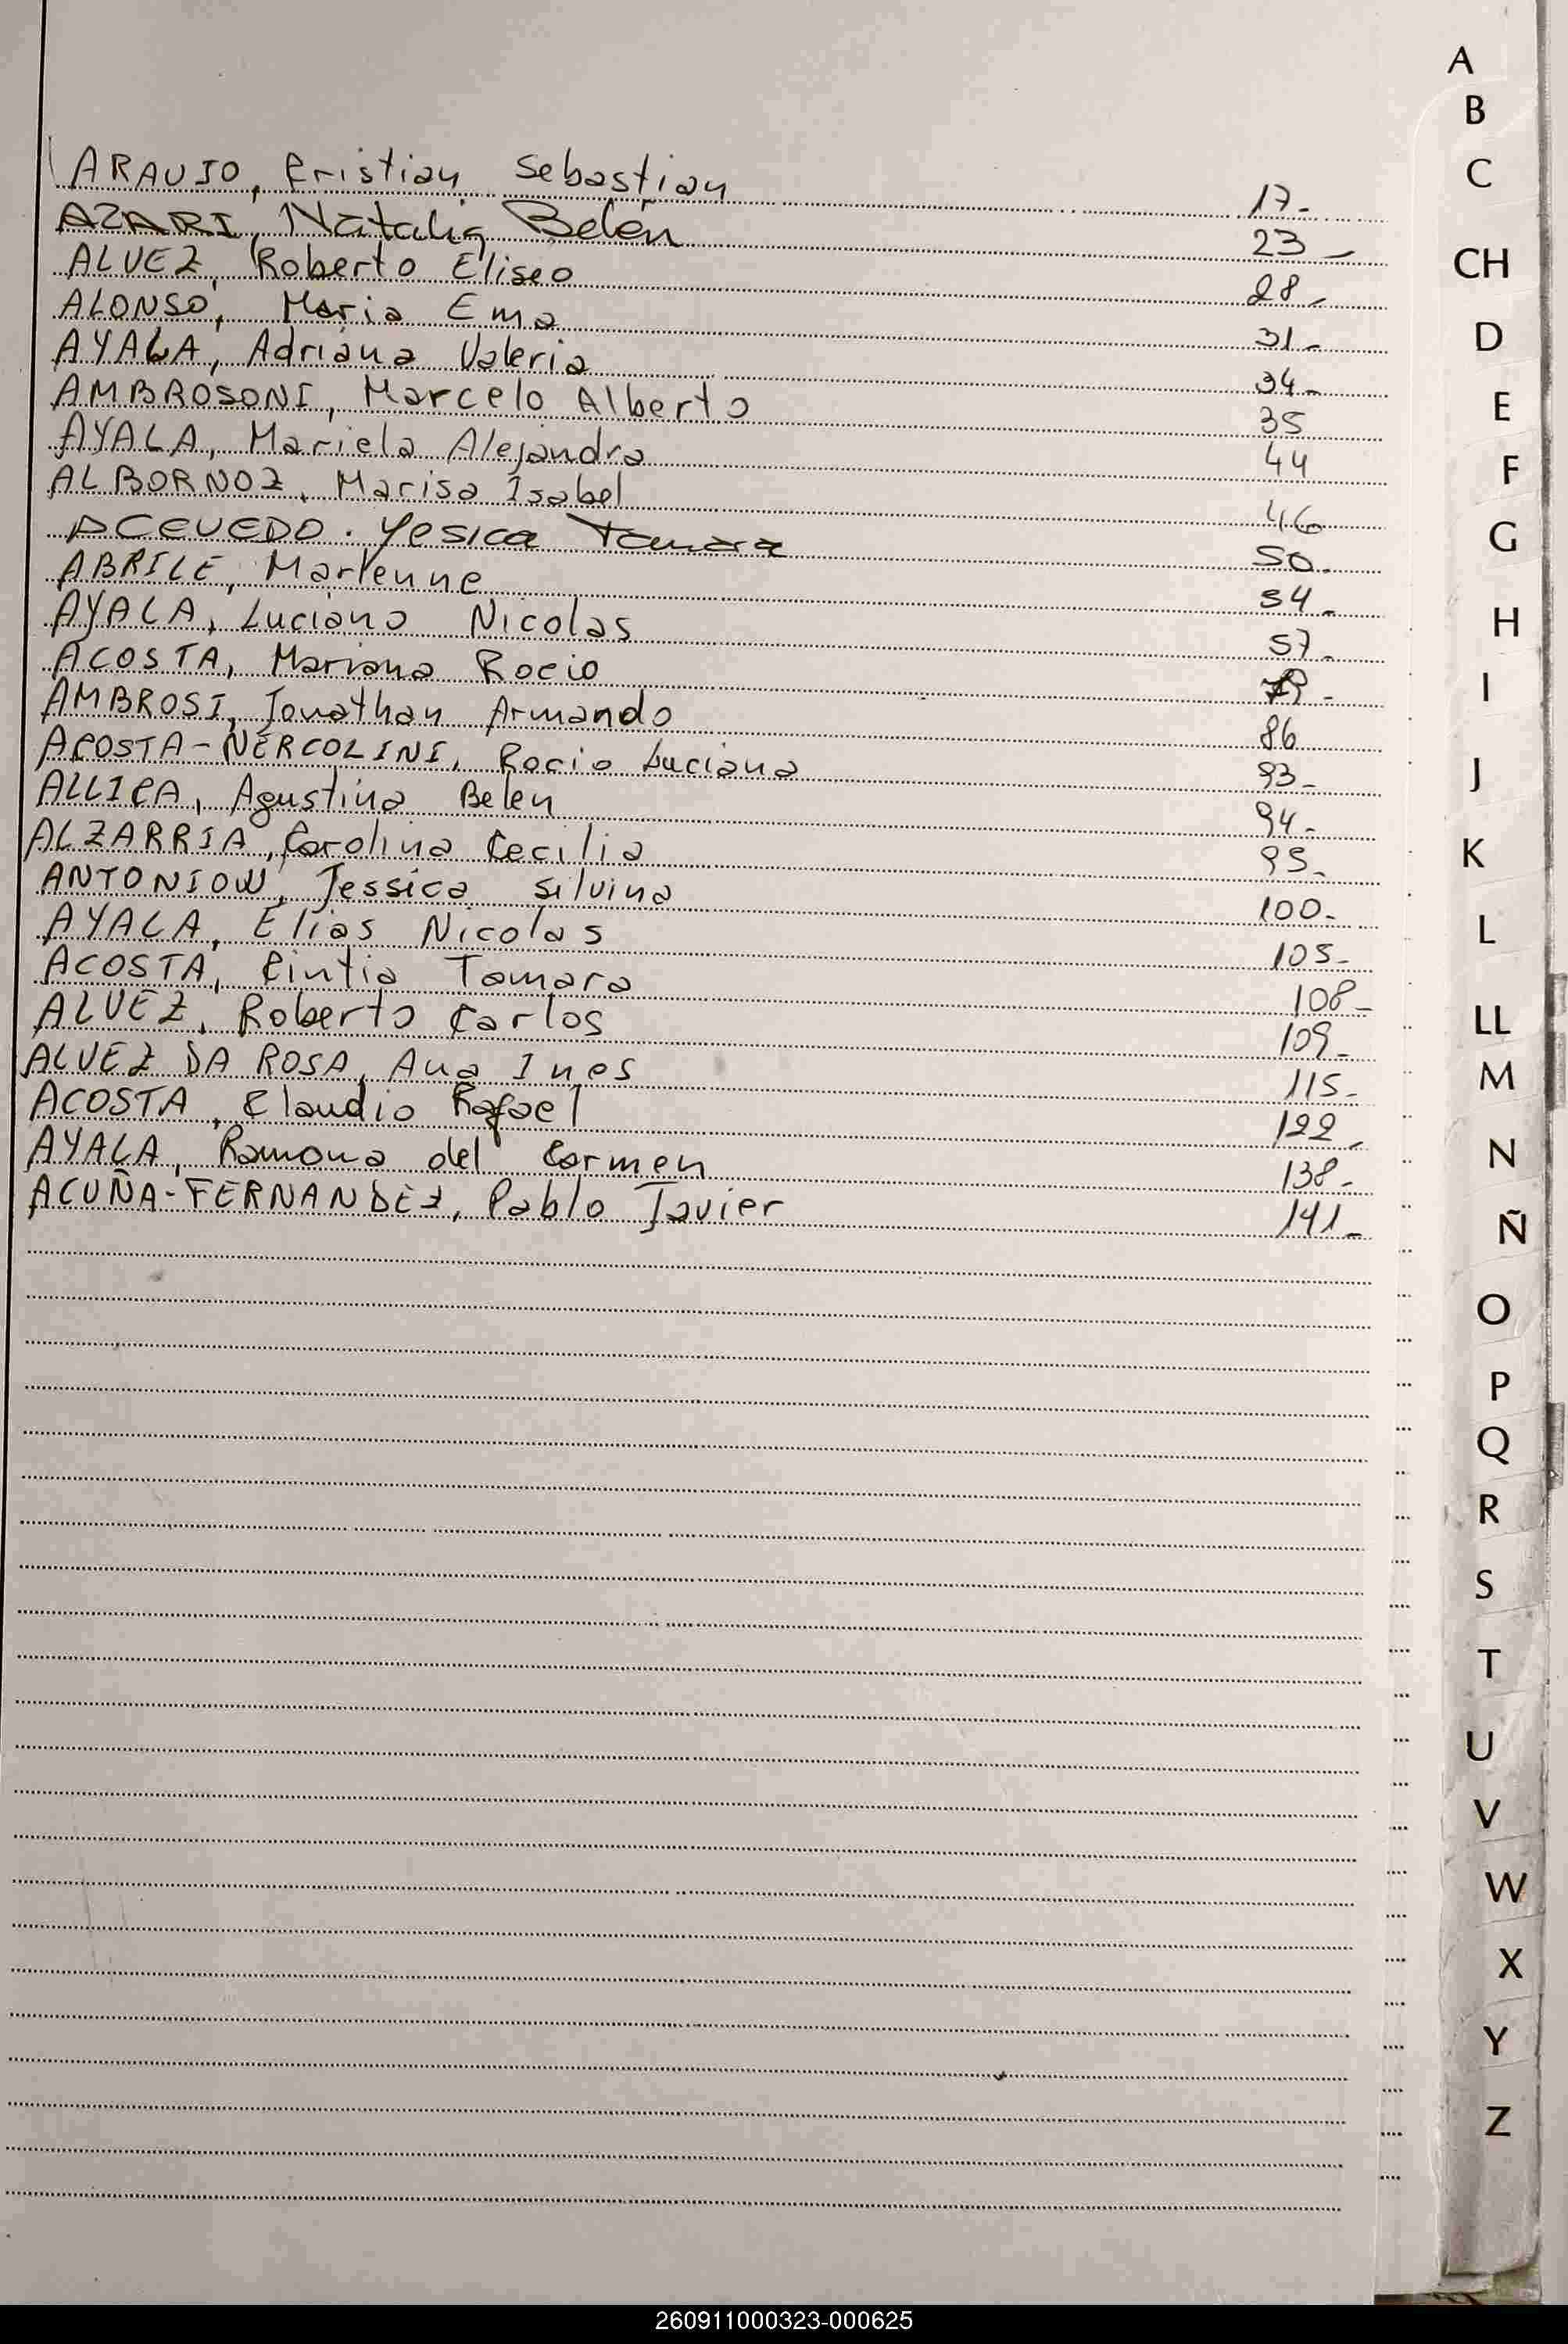 ARAUJO, Cristian Sebastian 17-
AZARI, Natalia Belén 23-
ALVEZ, Roberto Eliseo 28-
ALONSO, Maria Ema 31-
AYALA, Adriana Valeria 34-
AMBROSONI, Marcelo Alberto 35
AYALA, Mariela Alejandra 44
ALBORNOZ, Marisa Isabel 46
ACEVEDO. Yesica Tamara 50.
ABRILE, Marlenne 54-
AYALA, Luciano Nicolas 57-
ACOSTA, Mariana Rocio
AMBROSI, Jonathan Armando 86
ACOSTA-NERCOLINI, Rocio Luciana 93-
ALLICA, Agustina Belen 94-
ALZARRIA, Carolina Cecilia 95-
ANTONIOW, Jessica Silvina 100-
AYALA, Elias Nicolas 105-
ACOSTA, Cintia Tamara 108-
ALVEZ, Roberto Carlos 109-
ALVEZ DA ROSA, Ana Ines 115-
ACOSTA, Claudio Rafael 122-
AYALA, Ramona del Carmen 138-
ACUÑA-FERNANDEZ, Pablo Javier 141-
A
B
C
CH
D
E
F
G
H
I
J
K
L
LL
M
N
Ñ
O
P
Q
R
S
T
U
V
W
X
Y
Z
260911000323-000625